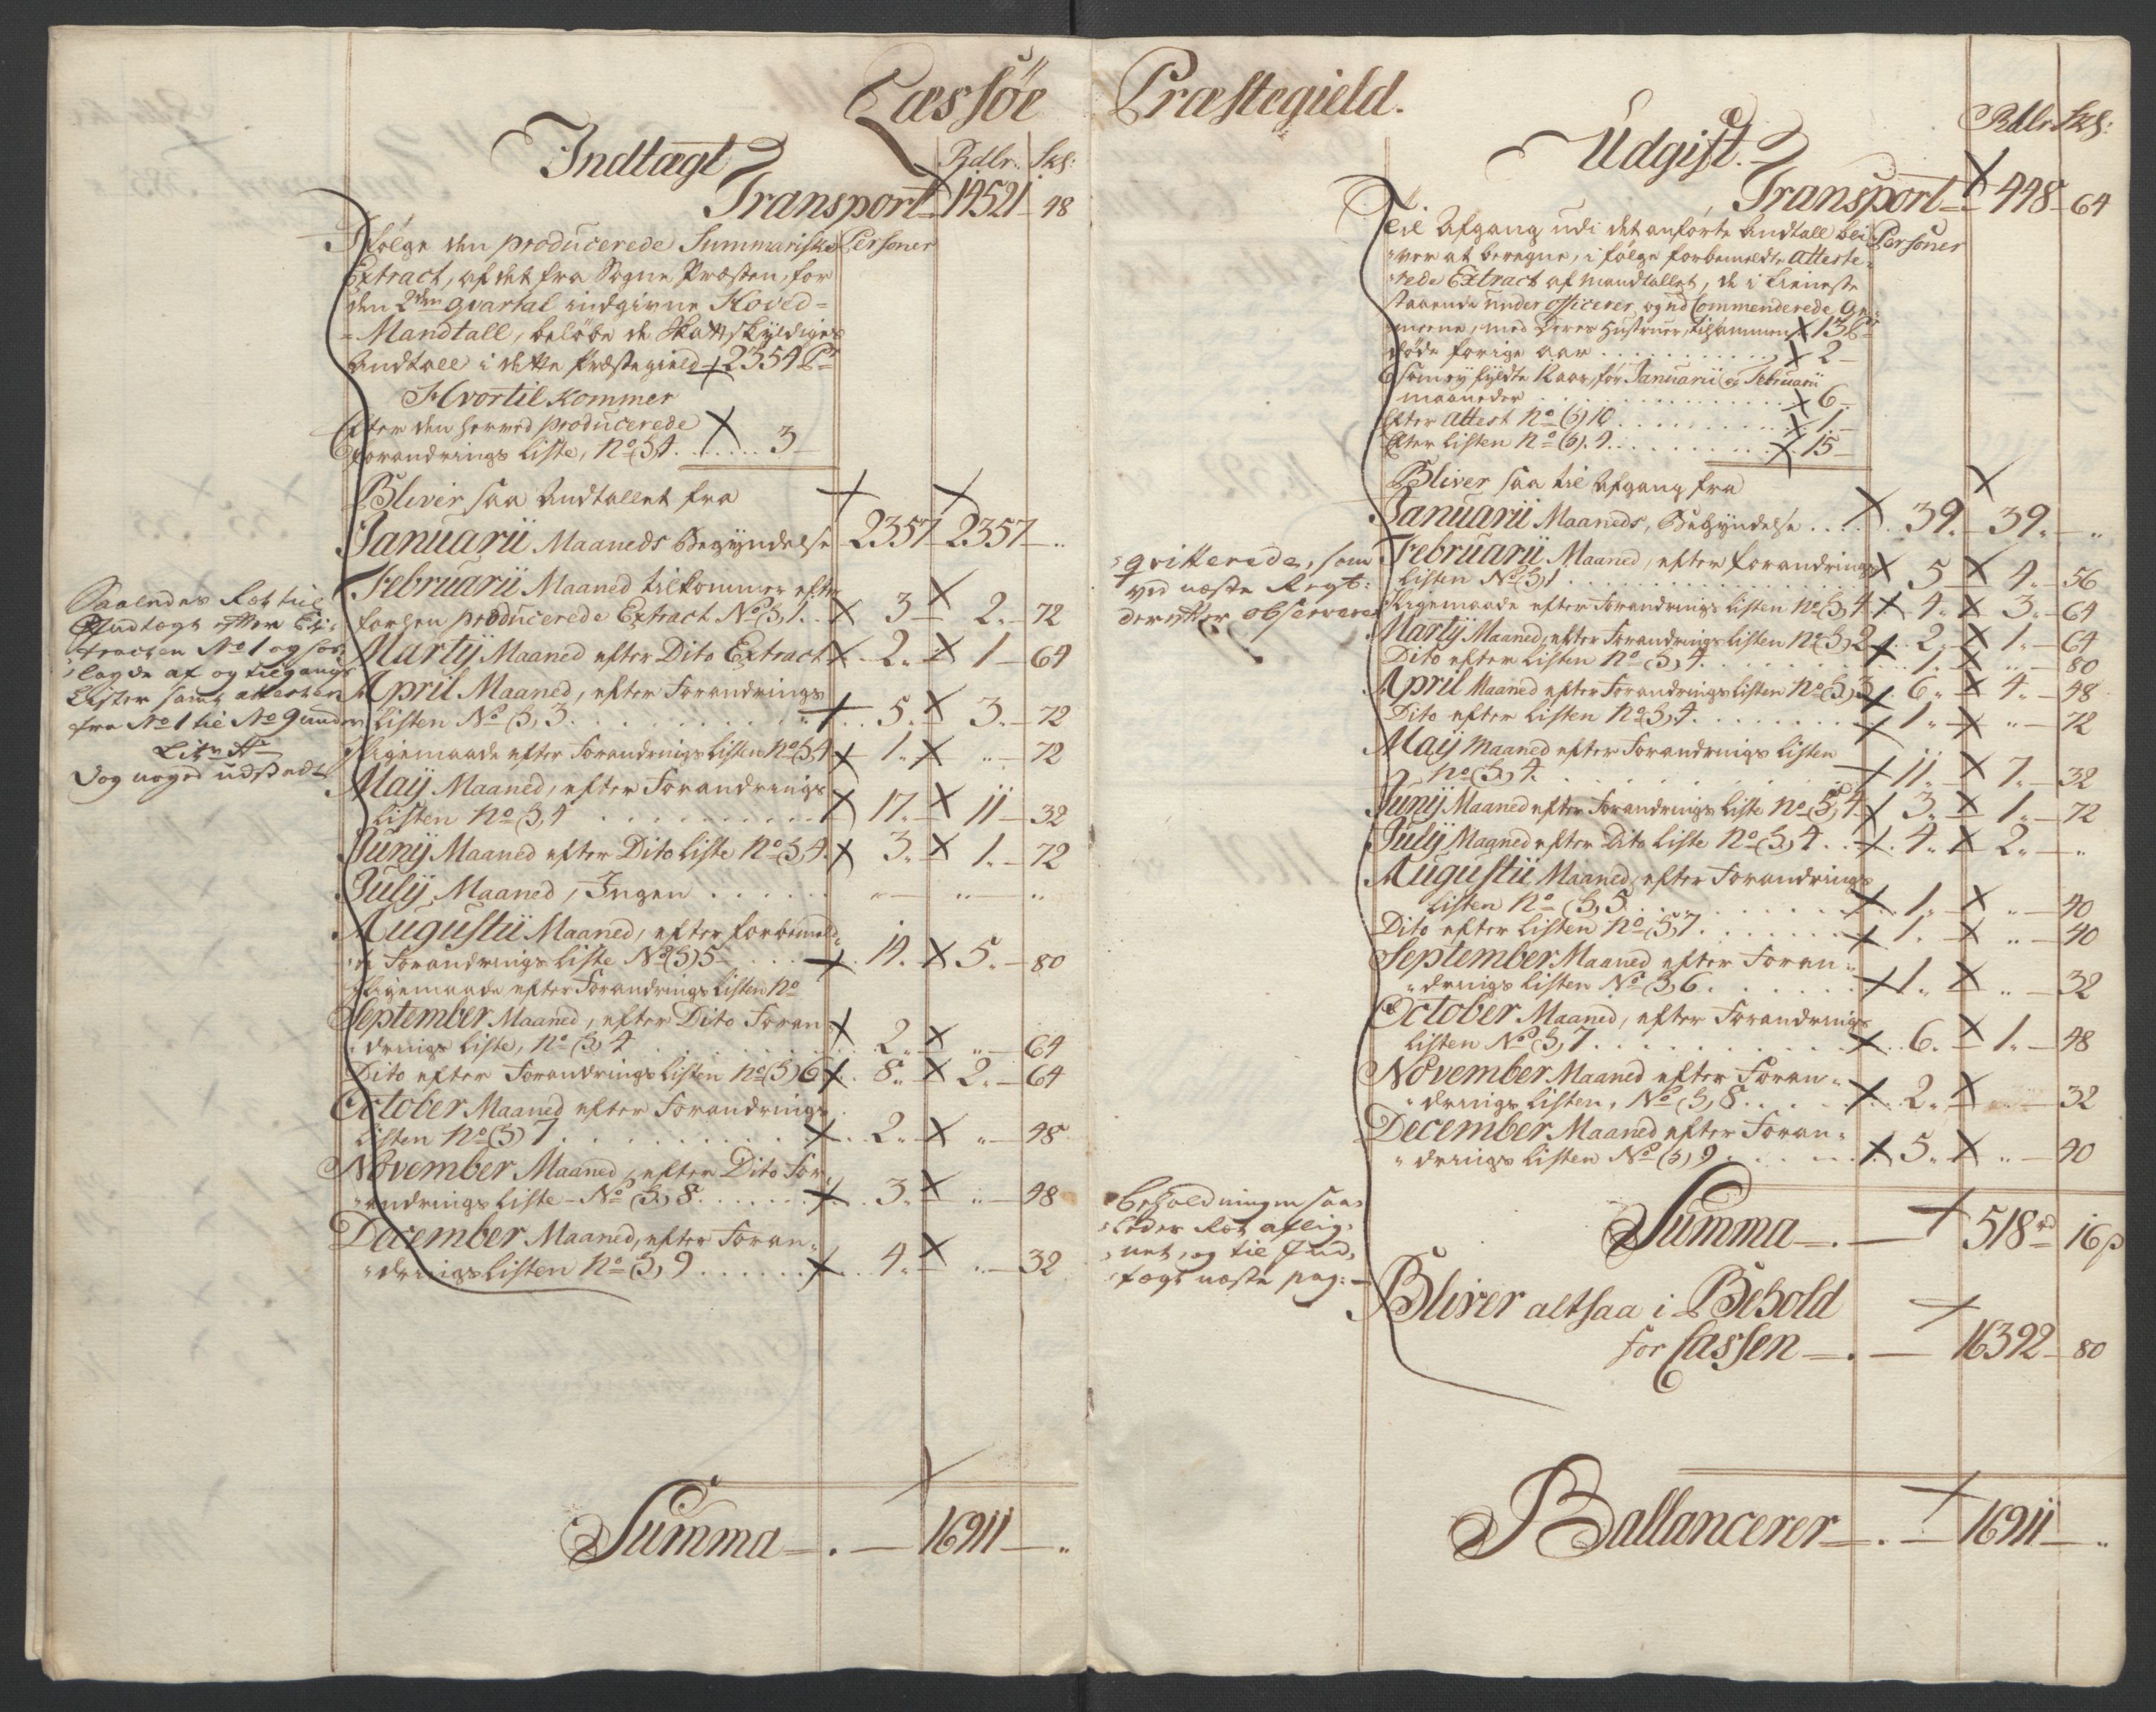 Læssøe Præstegield.
Indtægt
Rdlr. Skl:
Transport 14521 48
Ifølge den producerede Summariske Personer
Extract, af det fra Sogne Præsten, for
den 2den qvartal indgivne Hoved=
=Mandtall, beløbe de Skattskyldiges
Andtall i dette Præstegield 2354 Pr
Hvortil kommer
Efter den herved producerede
Forandrings Liste, No (3,4 ...... 3
Bliver saa Andtallet fra
Januarii Maaneds Begÿndelse 2357 2357 "
Februarii Maaned tilkommer efter
forhen producerede Extract No (3,1. 3 2. 72
Martÿ Maaned efter Dito Extract 2. 1 64
April Maaned, efter Forandrings
Listen No (3,3 ...... 5. 3. 72
Ligemaade efter Forandrings Listen No (3,4 1. " 72
Maÿ Maaned, efter Forandrings
Listen No (3,4 ...... 17. 11 32
Junÿ Maaned efter Dito Liste No (3,4. 3. 1. 72
Julÿ, Maaned, Ingen ...... " " "
Augustii Maaned, efter forbemeld-
"te Forandrings Liste No (3,5 .... 14. 5. 80
Ligemaade efter Forandrings Listen No
September Maaned, efter Dito Foran
"drings Liste, No (3,4 2. " 64
Dito efter Forandrings Listen No (3,6 8. 2. 64
October Maaned efter Forandrings
Listen No (3,7 ........ 2. " 48
November Maaned, efter Dito For-
"andrings Liste - No (3,8 ...... 3. " 48
December Maaned, efter Foran"
"drings Listen No (3,9 ...... 4. " 32
Summa 16911 "
Saaledes Ret til
Indtægt efter Ex-
tracten No 1 og for-
lagde af og tilgangs
Lister samt attester
fra No 1 til No 9 under
Litr A
Dog noged udstedt
Udgift.
Rdlr Skl:
Transport 448 64
Til Afgang udi det anførte Andtall bli Personer
"ver at beregne, i følge forbemeldte atteste-
"rede Extract af mandtallet, de i tieneste
staaende under officerer, og nd Commenderede Ge-
"meene, med deres Hustruer, tilsammen 15 Pr
døde forige aar .......... 2
som eÿ fÿldte 12 aar, før Januarii og Februarii
maaneder ........ 6
Efter attest No (3,10 ........ 1
Efter Listen No (3,4 ........ 15
Bliver saa til Afgang fra
Januarii Maaneds, Begÿndelse .... 39. 39. "
Februarii Maaned, efter forandrings
Listen No (3,1 ........ 5 4. 56
Ligemaade efter Forandrings Listen No (3,4 4. 3. 64
Martÿ Maaned, efter Forandrings Listen No (3,2 2. 1. 64
Dito efter Listen No (3,4 ........ 1. " 80
April Maaned efter Forandrings Listen No (3,3 6. 4. 48
Dito efter Listen No 3,4 ........ 1. " 72
Maÿ Maaned efter Forandrings Listen
No (3,4. ........ 11. 7. 32
Junÿ Maaned efter Forandrings Liste No (3,4 3. 1. 72
Julÿ Maaned efter Dito Liste No (3,4 .. 4. 2. "
Augustii Maaned, efter Forandrings
Listen No (3,5 ........ 1. " 40
Dito efter Listen No (3,7 ........ 1. " 40
September Maaned efter Foran"
"drings Listen No (3,6 ........ 1. " 32
October Maaned, efter Forandrings
Listen No (3,7 ........ 6. 1. 48
November Maaned efter Foran"
"drings Listen, No (3,8 .... 2. 32
December Maaned efter Foran"
"drings Listen No (3,9 .... 5. " 40
Summa 518 rd 16 s
Bliver altsaa i Behold
for Cassen 16392 80
Ballancerer 16911 "
qvitterede, som
ved neste Regt:
derefter observeres
beholdningen saa-
ledes Ret aflig-
net, og til Ind-
tægt næste pag: